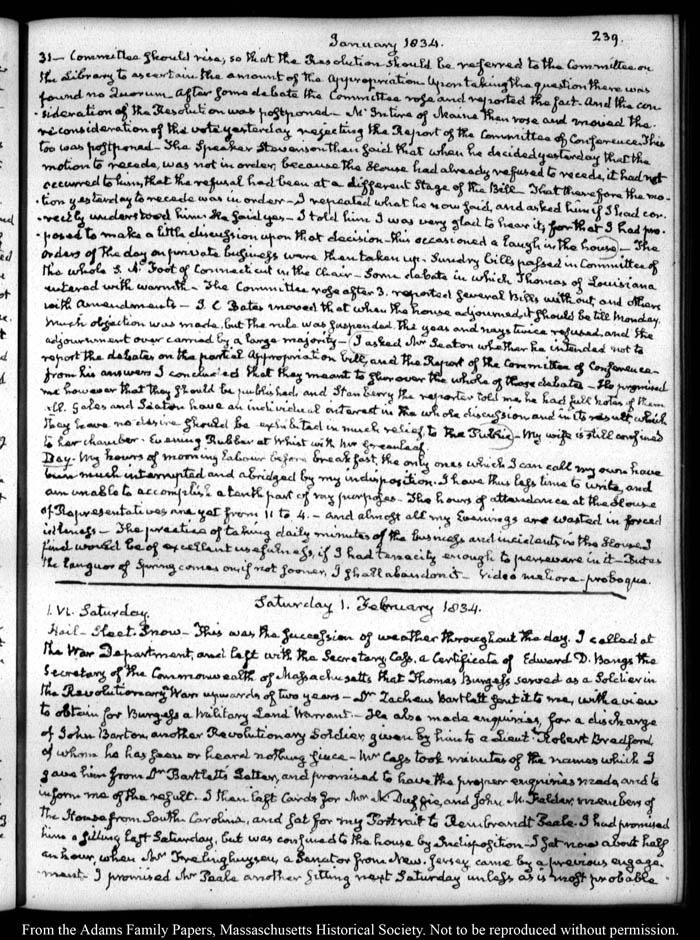 January 1834.
239.
31 — Committee should rise, so that the Resolution should be referred to the Committee on
the Library to ascertain the amount of the Appropriation. Upon taking the question there was
found no Quorum. After some debate the Committee rose and reported the fact. And the con-
sideration of the Resolution was postponed — Mc Intire of Maine then rose and moved the
reconsideration of the vote yesterday rejecting the Report of the Committee of Conference. This
too was postponed — The Speaker Stevenson then said that when he decided yesterday that the
motion to recede, was not in order, because the House had already refused to recede, it had not
occurred to him, that the refusal had been at a different stage of the Bill — That therefore the mo-
tion yesterday to recede was in order — I repeated what he now said, and asked him if I had cor-
rectly understood him. He said yes — I told him I was very glad to hear it, for that I had pro-
posed to make a little discussion upon that decision — this occasioned a laugh in the house — The
orders of the day on private business were then taken up. Sundry bills passed in Committee of
the whole S. A. Foot of Connecticut in the Chair — Some debate in which Thomas of Louisiana
entered with warmth — The Committee rose after 3. reported several Bills without, and others
with Amendments — I. C. Bates moved that when the house adjourned, it should be till Monday.
Much objection was made, but the rule was suspended the yeas and nays twice refused, and the
adjournment over carried by a large majority — I asked Mr Seaton whether he intended not to
report the debates on the partial Appropriation bill, and the Report of the Committee of Conference —
from his answers I concluded that they meant to slur over the whole of those debates — He promised
me however that they should be published, and Stanberry the reporter told me he had full notes of them
all. Gales and Seaton have an individual interest in the whole discussion and in its result, which
they leave no desire should be exhibited in much relief to the Public — My wife is still confined
to her chamber. Evening Rubber at Whist with Mr Greenleaf.
Day. My hours of morning labour before breakfast, the only ones which I can call my own have
been much interrupted and abridged by my indisposition. I have thus less time to write, and
am unable to accomplish a tenth part of my purposes — The hours of attendance at the House
of Representatives are yet from 11 to 4. — and almost all my Evenings are wasted in forced
idleness — The practice of taking daily minutes of the business and incidents in the House, I
find would be of excellent usefulness, if I had tenacity enough to persevere in it — But as
the languor of Spring comes on, if not sooner, I shall abandon it — Video meliora — proboque.
Saturday 1. February 1834.
1. VI. Saturday.
Hail — Sleet. Snow — This was the succession of weather throughout the day. I called at
the War Department, and left with the Secretary Cass, a Certificate of Edward D. Bangs the
Secretary of the Commonwealth of Massachusetts that Thomas Burgess served as a Soldier in
the Revolutionary War upwards of two years — Dr Zacheus Bartlett sent it to me, with a view
to obtain for Burgess a Military Land Warrant — He also made enquiries, for a discharge
of John Barton, another Revolutionary Soldier, given by him to a Lieut. Robert Bradford,
of whom he has seen or heard nothing since — Mr Cass took minutes of the names which I
gave him from Dr Bartlett's Letter, and promised to have the proper enquiries made, and to
inform me of the result. I then left Cards for Mr McDuffie, and John M. Felder, members of
the House from South Carolina, and sat for my Portrait to Rembrandt Peale. I had promised
him a sitting last Saturday, but was confined to the house by Indisposition — I sat now about half
an hour, when Mr Frelinghuysen, a Senator from New Jersey came by a previous engage-
ment — I promised Mr Peale another sitting next Saturday unless as is most probable
From the Adams Family Papers, Massachusetts Historical Society. Not to be reproduced without permission.